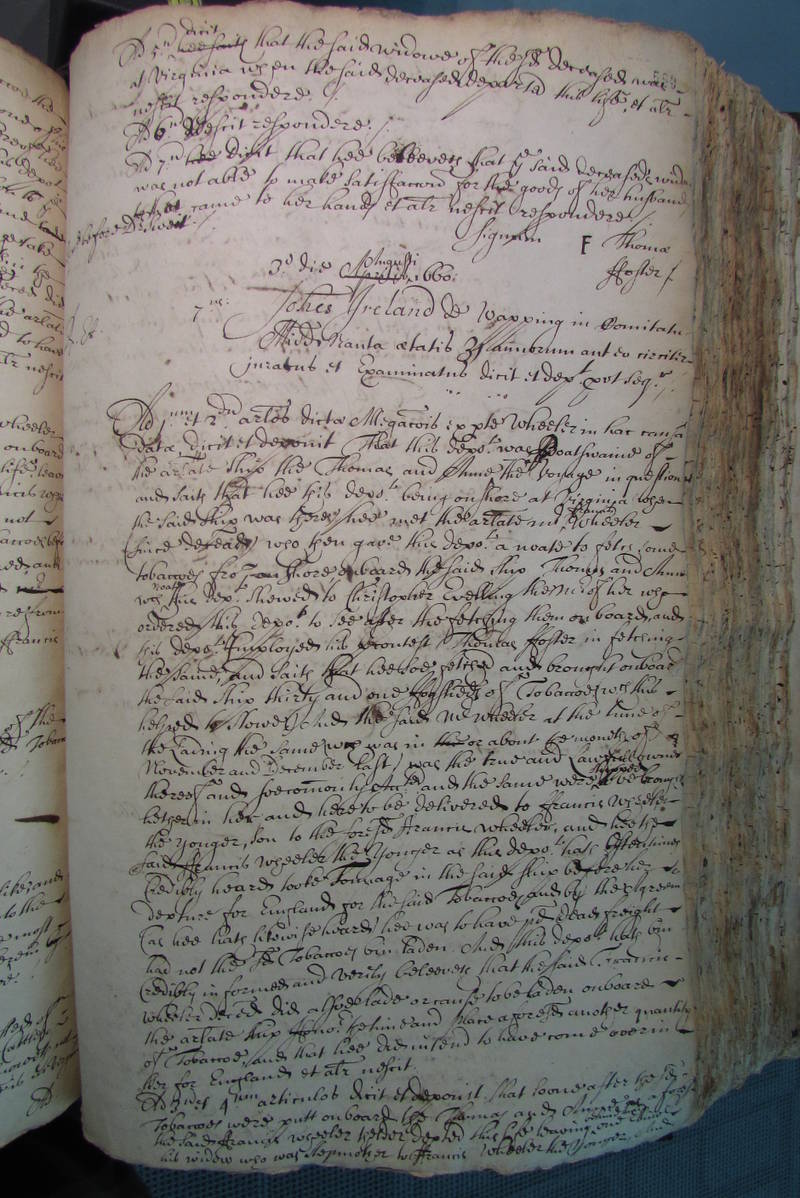 Ad 5um dicit that the said widowe of the sd deceased was
at Virginia when the said deceased departed this life, et alr
nescit respondere /
Ad 6um nescit respondere /
Ad 7um dicit that hee beleeveth that ye said deceaseds widow
was not able to make satisfaccon for the goods of her husband
came to her hands et alr nescit respondere /
before Dr
Signum F Thomæ
ffoster /
3o die Augusti 1660:
7us: Johes Ireland de Wapping in Comitatu
Midd Nauta ætatis annorum aut eo circiter
juratus et Examinatus dicit et depot pot seqr /
Ad 1um et 2um artlos dictæ Allegaonis ex pte Wheeler in hac causa
data, dicit et deponit That this depot was Boatswaine of
the arlate ship the Thomas and Anne the voyage in question
and saith that hee this depot being on shore at Virginia when
the said ship was there, hee met the arlate mr ffrancis Wheeler
(since deceased) who then gave this depot a noate to fetch some
tobaccoes from on shore onboard the said ship Thomas and Anne
wch noate this depot shewed to Christopher Evelling the Mr of her who
ordered this depot to see after the fetching them on board, and
this depot Employed his contest Thomas ffoster in fetching
the same, and saith that hee soe fetched and brought onboard
the said ship thirty and one hogsheads of Tobaccoes wch this
helped to stowe, And the said Mr Wheeler at the time of
the lading the same (wch was in or about the moneths of
November and December last) was the true and lawfull owner
thereof and soe commonly Accted and the same were shipped to be brought
hether in her and here to be delivered to ffrancis Wheeler
the yonger, son to the foresd ffrancis Wheeler, and hee the
said ffrancis Wheeler the Yonger as this depot hath oftentimes
credibly heard tooke Tonnage in the said ship before her
depture for England for the said Tobaccoes, and by the agreemt
(as hee hath likewise heard) hee was to have pd dead freight
had not the sd Tobaccoes bin laden. And this depot hath bin
credibly informed and verily beleeveth that the said ffrancis
Wheeler deced did alsoe lade or cause to be laden onboard
the arlate ship the time and place aforesd another quantity
of Tobaccoe, and that hee did intend to have come over in
her for England et alr nescit.
Ad 3um et 4um articulos dicit et deponit that soone after the sd
Tobaccoes were putt onboard the Thomas and Anne as aforesd
the said ffrancis Wheeler the elder depted this life leaving
his widow who was stepmother to ffrancis Wheeler the Yonger, And